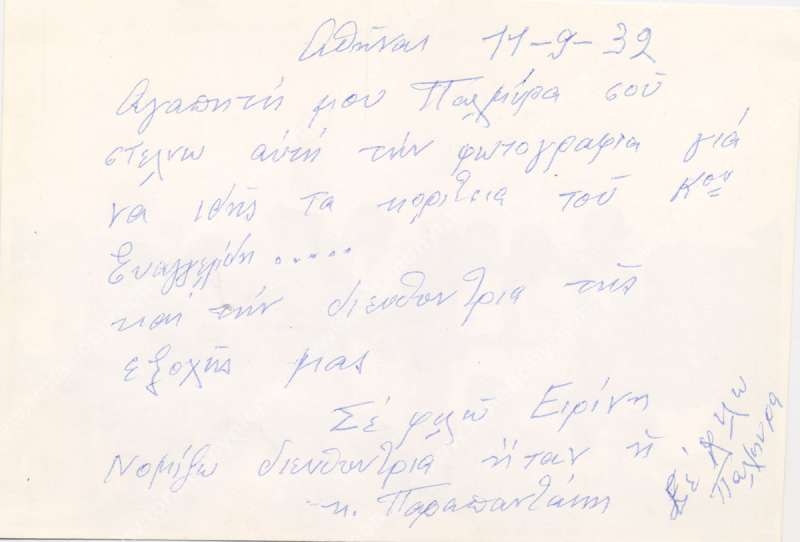 Αθήναι 11-9-32
Αγαπητή μου Παλμύρα σοῦ
στελνω αύτή τήν φωτογραφια γιά
νά ιδῆς τα κοριτσια τοῦ Κου
Ευαγγελίδη.....
καί τήν διευθυντρια τῆς
εξοχῆς μας
Σέ φιλῶ Ειρίνη
Νομίζω διευθυντρια ἤταν ἤ
κ. Παραπαντάκη
Σέ φιλω
Παλμυρα